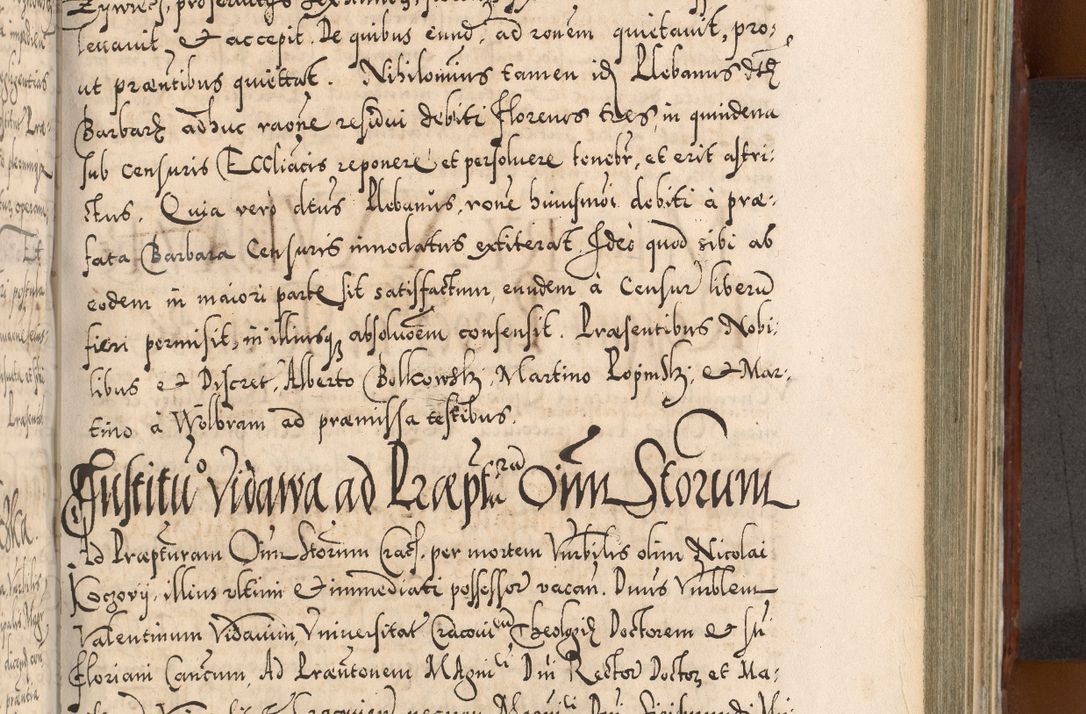 leuauit, et accepit. De quibus eund, ad ronem quietauit, pro,
ut præntibus quiettat. Nihilominus tamen id Plebanus dtæ
Barbaræ adhuc raone residui debiti florenos tres, in quindena
sub censuris Eccliacis reponere et persoluere tenebr, et erit astri:
ctus. Quia vero dtus Plebanus, rone huiusmoi debiti à præ:
fata Barbara Censuris innodatus extiterat Ideo quod sibi ab
eodem in maiori parte sit satisfactum, eundem à Censur liberum
fieri permisit, in illiusq absoluoem consensit. Præsentibus Nobi:
libus et Discret, Alberto Bolkowski, Martino Ropinski, et Mar:
tino à Wolbram ad præmissa testibus.
Institutio Vidawa ad Præpturam Oium Storum
Ad Præpturam Oium Storum Crac. per mortem Vnrbilis olim Nicolai
Koczorÿ, illius vltimi et immediati possessor vacan. Dnus Vnrblem
Valentinum Vidauium, Vniuersitat Cracouien Theologiæ Doctorem et Sti
Floriani Cancum, Ad Præntonem Magnici Dni Rector Doctor et Ma: